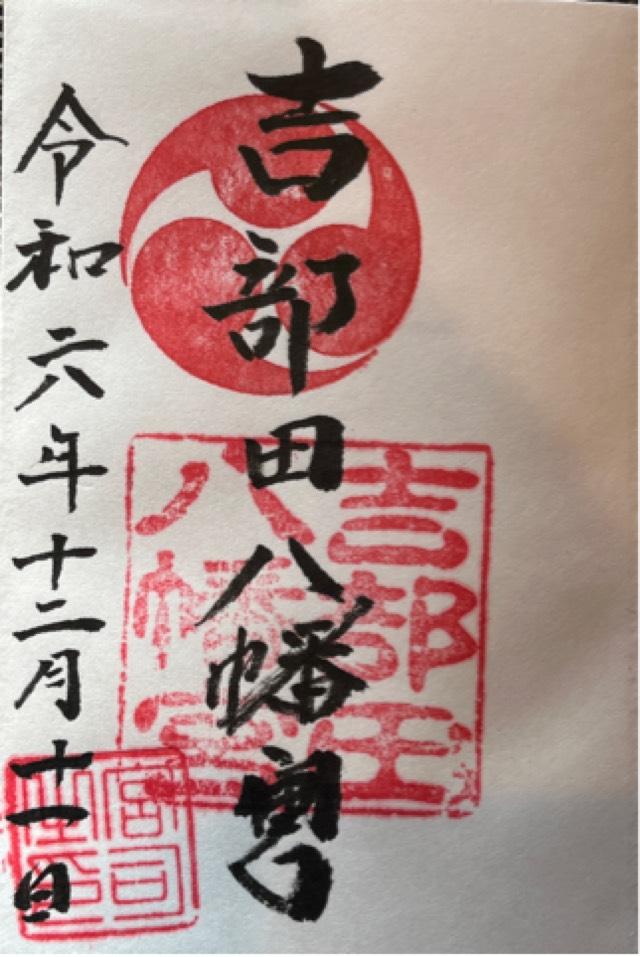 吉部田八幡宮
令和六年十二月十一日
吉部
八幡宮
宮司